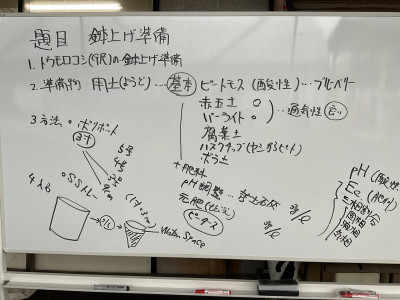 題目 鉢上げ準備
1. トウモロコシ(1穴)の鉢上げ準備
2. 準備物 用土(ようど)…基本 ピートモス(酸性)…ブルーベリー
赤玉土 ○
パーライト ○ …通気性
腐葉土
ハスクチップ(ヤシからピート)
ボラ土
+ 肥料
pH調整… 苦土石灰 g/ℓ
元肥
ピータース g/ℓ
3. 方法 ○ポリポット
3寸
5号
4号
3号
9cm
○SSトレー
4人
(1寸=3cm)
Water Space
pH(酸性
EC(肥料
三相割合
固相
液相
気相